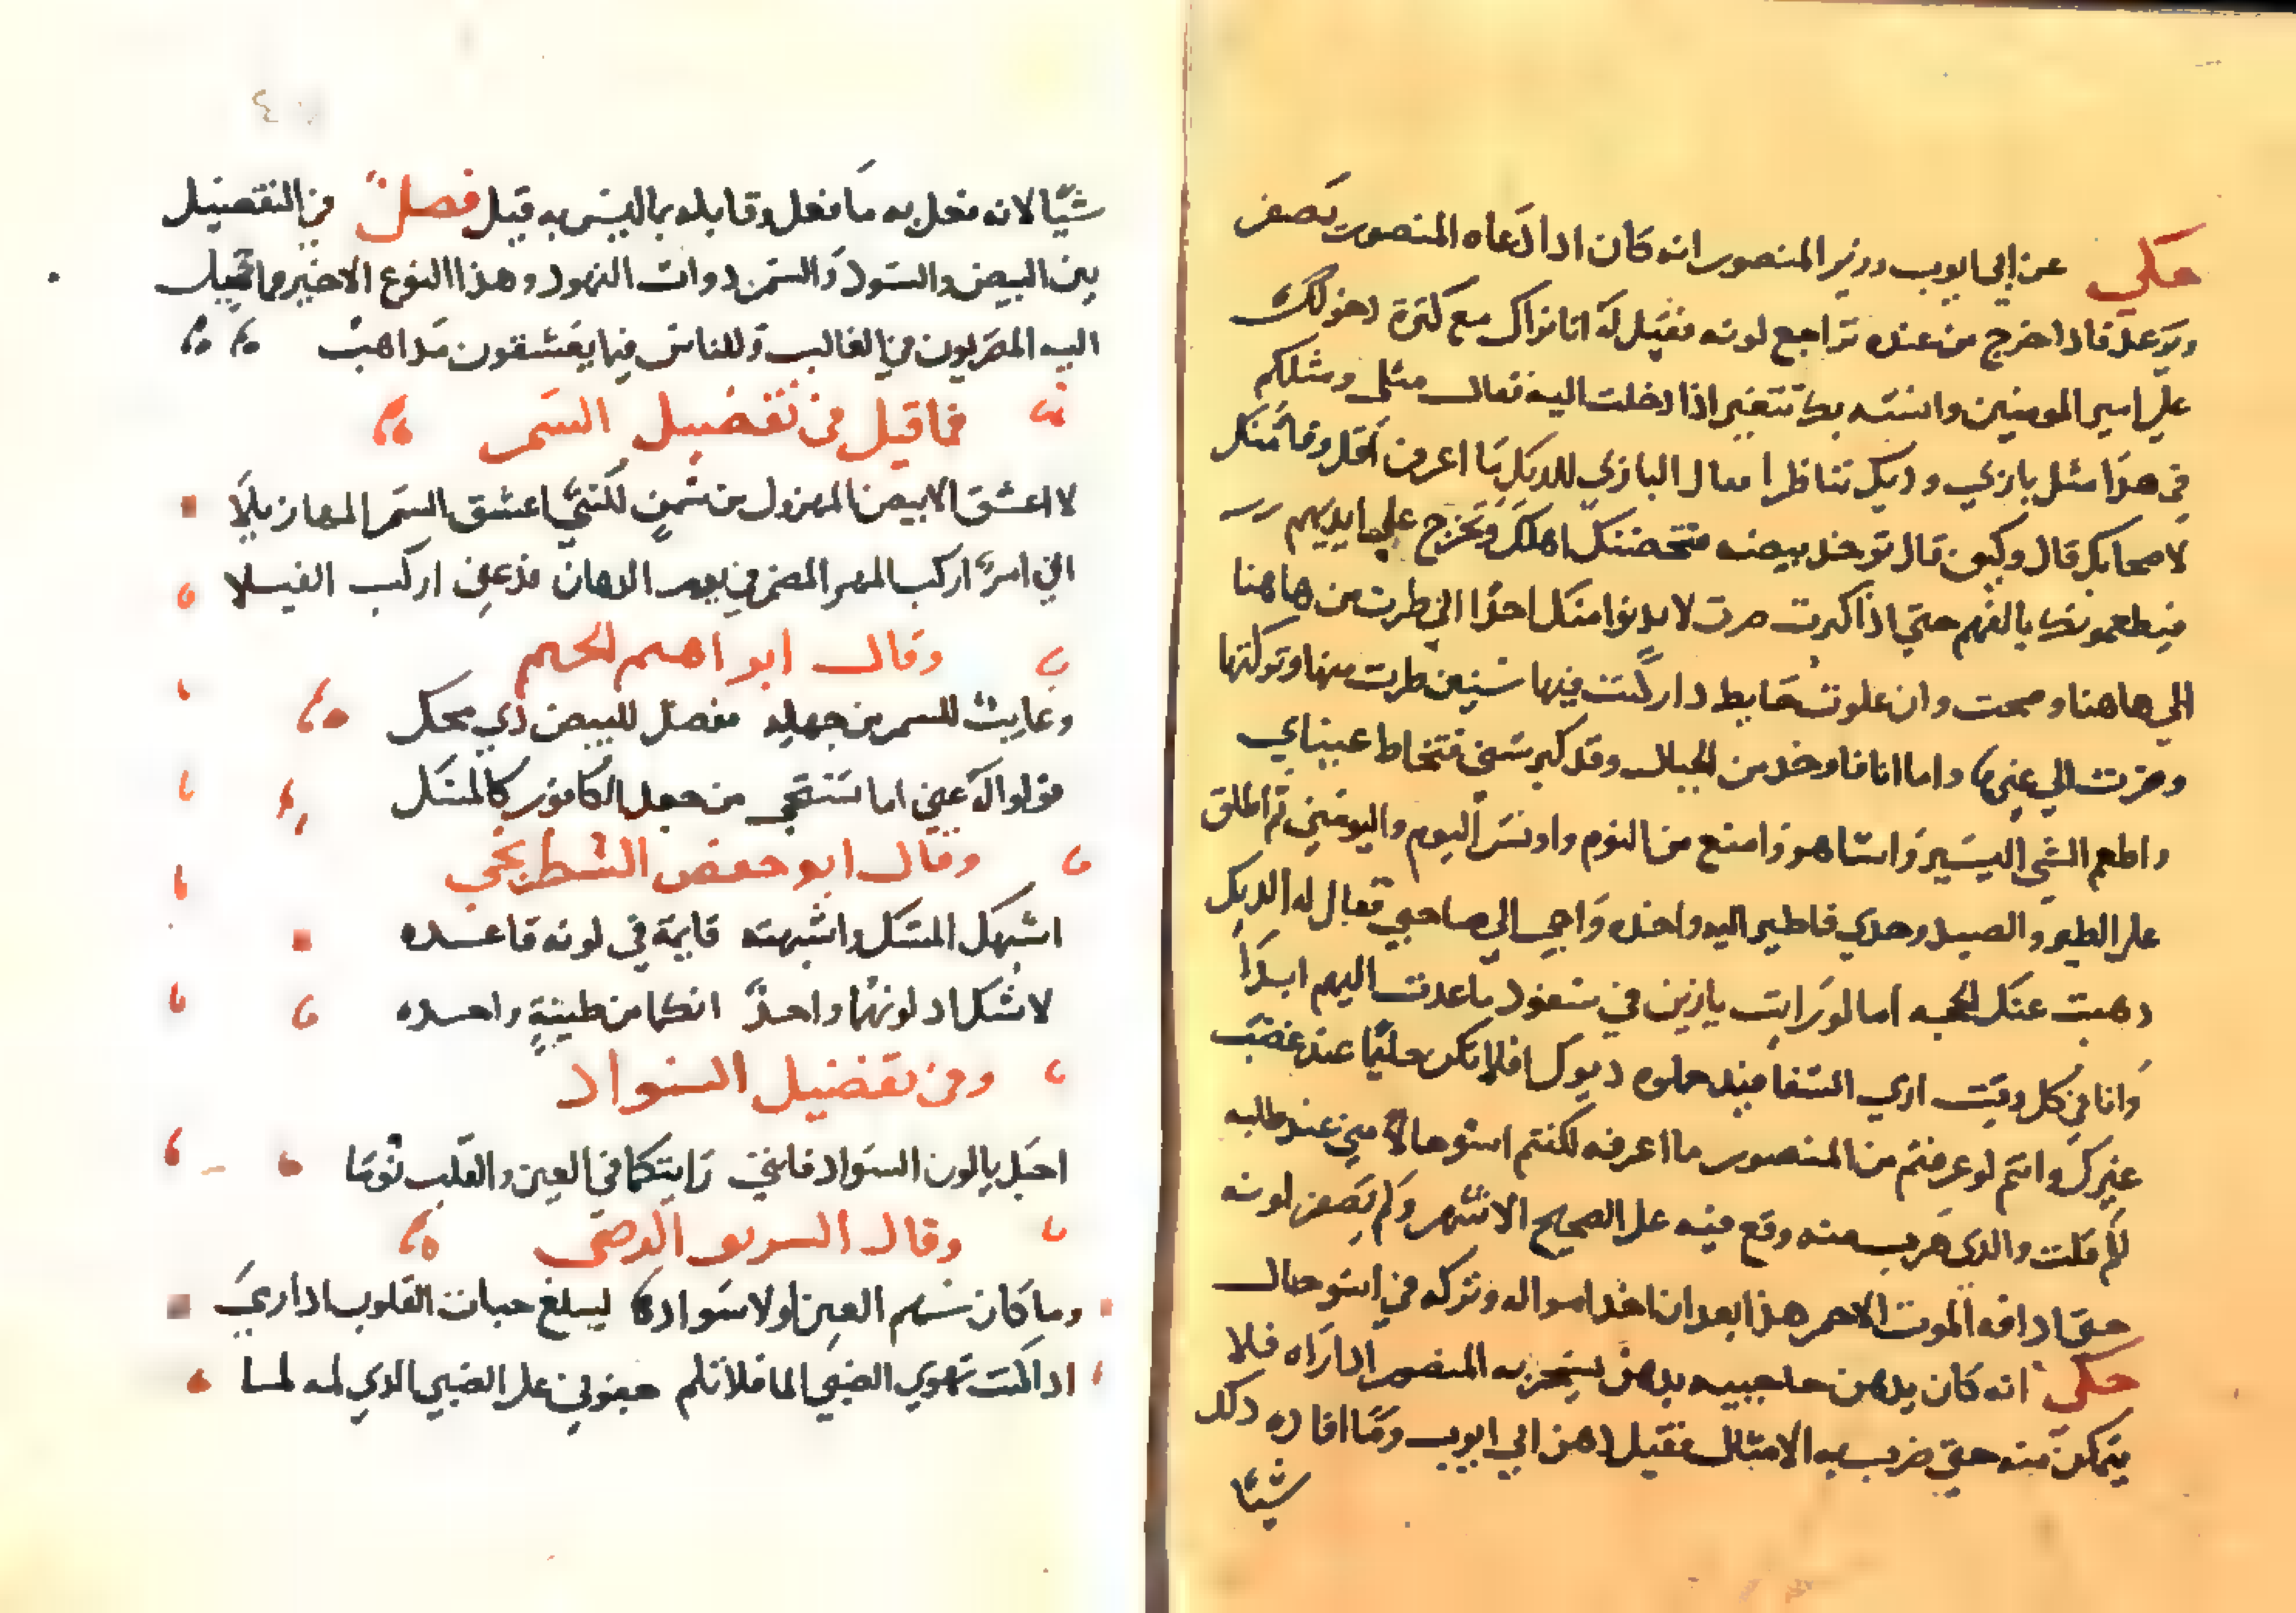 حكي عن ابي ايوب وزير المنصور انه كان ادا دعاه المنصور يصفر
ويرعد فادا خرج من عنده تراجع لونه فقيل له انا نراك مع كثرة دخولك
علي امير المومنين وانسه بك تتغير اذا دخلت اليه فقال مثلي ومثلكم
في هدا مثل بازي وديك تناظرا فقال البازي للديك ما اعرف اقل وفا منك
لاصحابك قال وكيف قال توخد بيضه فتحضنك اهلك وتخرج علي ايديهم
فيطعمونك بالفهم حتي اذا كبرت صرت لا يدنوا منك احدا الي طرت من هاهنا
الي هاهنا وصحت وان علوت حايط دار كنت فيها سنين طرت منها وتركتها
وصرت الي غيرها واما انا فاوخد من الجبال وقد كبر سني فتخاط عيناي
واطعم الشي اليسير واساهر وامنع من النوم واونس اليوم واليومين ثم اطلق
علي الطير والصيد وحدي فاطير اليه واخده واجي الي صاحبي فقال له الديك
دهبت عنك الحجه اما لو رايت بازين في سفود ما عدت اليهم ابدا
وانا في كل وقت اري السفافيد مملوه ديوك افلا تكن حليما عند غضب
غيرك وانتم لو عرفتم من المنصور ما اعرفه لكنتم اسوء حالا مني عند طلبه
لكم قلت والدي هرب منه وقع فيه علي الصحيح الاشهر ولم يصفر لونه
حتي اداقه الموت الاحمر هذا بعد ان اخد امواله وتركه في اسو حال
حكي انه كان يدهن حاجبيه بدهن يسحر به المنصور ادا راه فلا
يتمكن منه حتي ضرب به الامثال فقيل دهن ابي ايوب وما افاده دلك
شيا
٤
شيا لانه فعل به ما فعل وقابله بما ليس به قبل فصل في التفضيل
بين البيض والسود والسمر دوات النهود وهذا النوع الاخير ما تميل
اليه المصريون في الغالب وللناس فيما يعشقون مداهب
فما قيل في تفضيل السمر
لا اعشق الابيض المهزول من سمن لكنني اعشق السمر المهازيلا
اني امرء اركب المهر المضمر في يوم الرهان فدعني اركب الفيلا
وقال ابراهيم الحجم
وعايب للسمر من جهله مفضل للبيض دي محك
قولوا له عني اما تستحي من جعل الكافور كالمسك
وقال ابو حفص الشطرنجي
اشبهك المسك واشبهته قايمة في لونه قاعده
لا شك اد لونهما واحد انكما من طينة واحده
وفي تفضيل السواد
احبك يا لون السواد فانني رايتكما في العين والقلب توما
وقال السريو الرضي
وما كان سهم العين لولا سوادها ليبلغ حبات القلوب ادا رمي
ادا كنت تهوي الظبي الما فلا تلم جنوني علي الظبي الدي كله لما